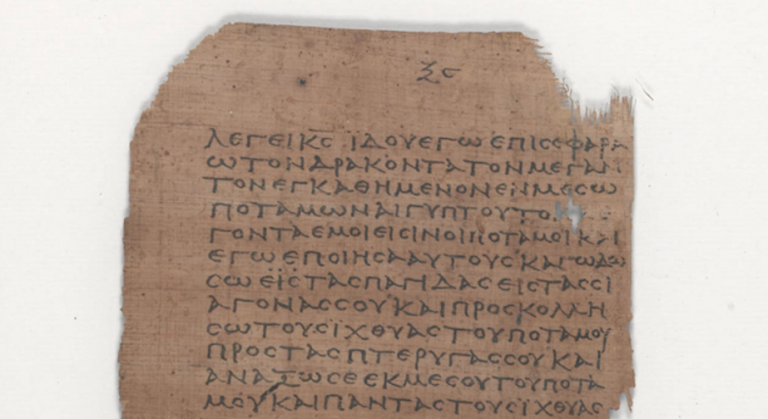 ξϛ
ΛΕΓΕΙΚ̅Ϲ̅ ΙΔΟΥΕΓΩΕΠΙϹΕΦΑΡΑ
ΩΤΟΝΔΡΑΚΟΝΤΑΤΟΝΜΕΓΑΝ
ΤΟΝΕΓΚΑΘΗΜΕΝΟΝΕΝΜΕϹΩ
ΠΟΤΑΜΩΝΑΙΓΥΠΤΟΥ
ΓΟΝΤΑΕΜΟΙΕΙϹΙΝΟΙΠΟΤΑΜΟΙΚΑΙ
ΕΓΩΕΠΟΙΗϹΑΑΥΤΟΥϹΚΑΙ
ϹΩΕΪϹΤΑϹΠΑΓΙΔΑϹΕΙϹΤΑϹϹΙ
ΑΓΟΝΑϹϹΟΥΚΑΙΠΡΟϹΚΟΛΛΗ
ϹΩΤΟΥϹΪΧΘΥΑϹΤΟΥΠΟΤΑΜΟΥ
ΠΡΟϹΤΑϹΠΤΕΡΥΓΑϹϹΟΥΚΑΙ
ΑΝΑΞΩϹΕΕΚΜΕϹΟΥΤΟΥΠΟΤΑ
ΜΟΥΚΑΙΠΑΝΤΑϹΤΟΥϹΪΧΘΥΑϹ